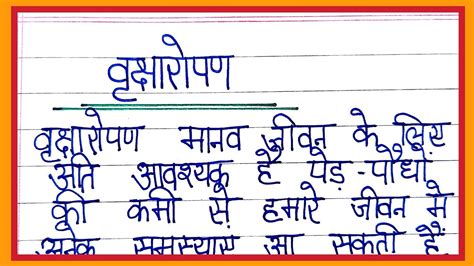 वृक्षारोपण
वृक्षारोपण मानव जीवन के लिए
अति आवश्यक है पेड़-पौधों
की कमी से हमारे जीवन मे
अनेक समस्याएं आ सकती हैं